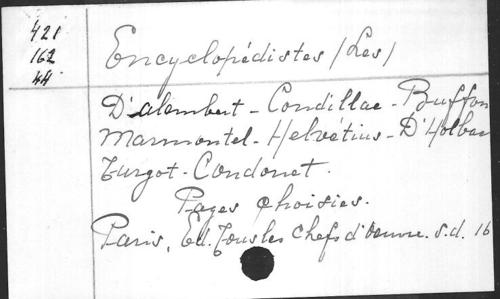 421
162
44
Encyclopédistes (Les)
D'alembert - Condillac - Buffon
Marmontel - Helvétius - D'Holbac
Turgot - Condorcet.
Pages choisies.
Paris, Ed. Tous les Chefs d'oeuvre. s.d. 16